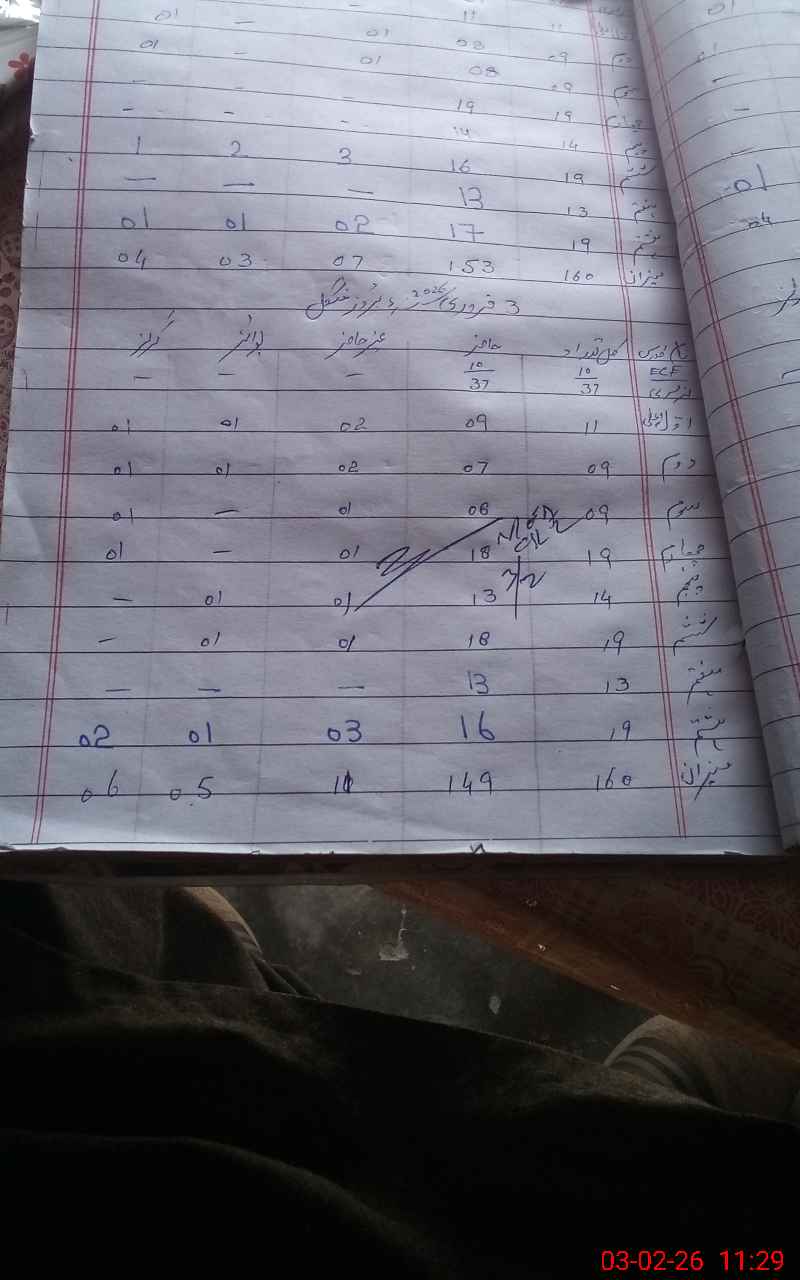 دوم 09 08 01 — 01
سوم 09 08 01 - 01
چہارم 19 19 - - -
پنجم 14 14 - - -
ششم 19 16 3 2 1
ہفتم 13 13 — — —
ہشتم 19 17 02 01 01
میزان 160 153 07 03 04
3 فروری 2026ء بروز منگل
نام کلاس کل تعداد حاضر غیر حاضر بوائز گرلز
ECE 10 10 — — —
نرسری 37 37
اول 11 09 02 01 01
دوم 09 07 02 01 01
سوم 09 08 01 — 01
چہارم 19 18 01 — 01
پنجم 14 13 01 01 —
ششم 19 18 01 01 —
ہفتم 13 13 — — —
ہشتم 19 16 03 01 02
میزان 160 149 11 05 06
3/2
01
04
03-02-26 11:29